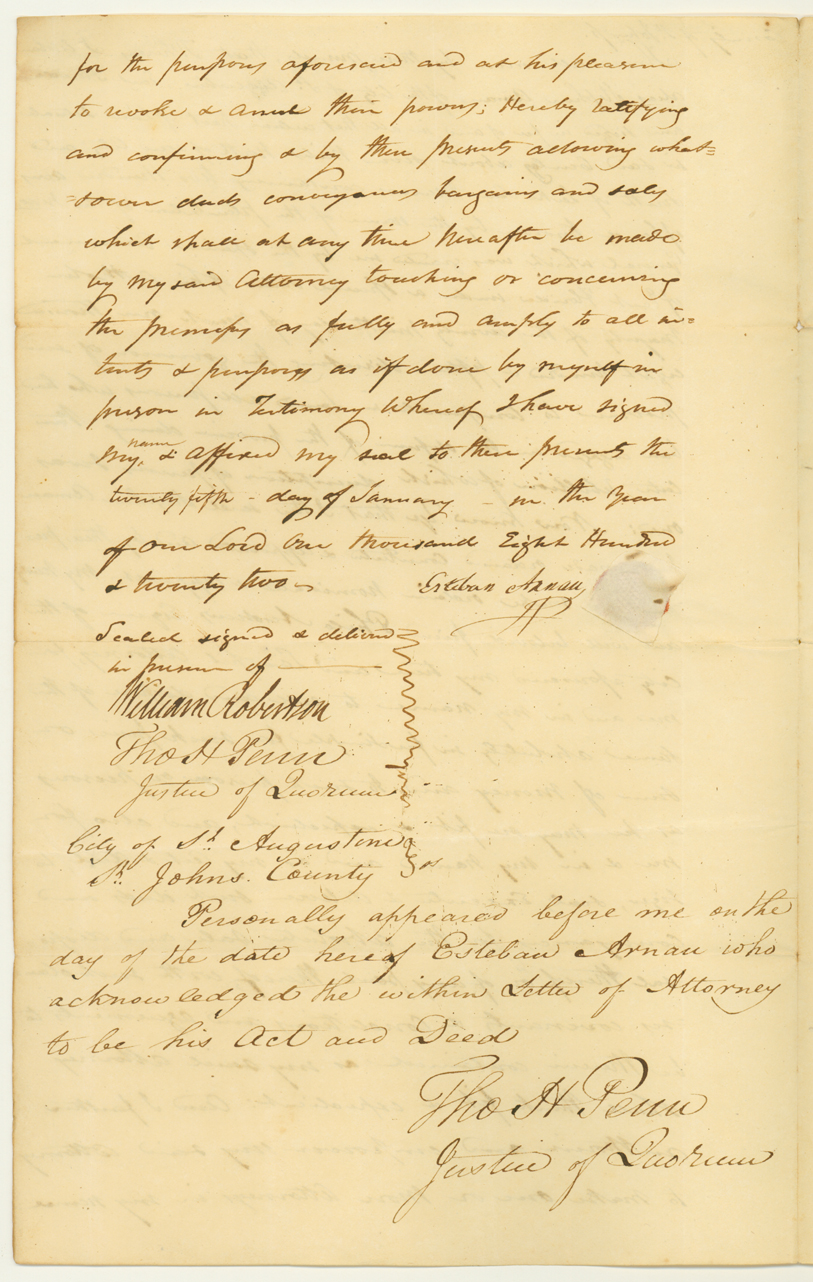 for the purposes aforesaid and at his pleasure
to revoke & annul their powers; Hereby ratifying
and confirming & by these presents allowing what=
=soever deeds conveyances bargains and sales
which shall at any time hereafter be made
by my said Attorney touching or concerning
the premises as fully and amply to all in=
tents & purposes as if done by myself in
person in Testimony Whereof I have signed
my name & affixed my seal to these presents the
twenty fifth - day of January - in the year
of our Lord One thousand Eight Hundred
& twenty two
Esteban Arnau
Sealed signed & delivered
in presence of
William Robertson
Tho H Penn
Justice of Quorum
City of St. Augustine
St. Johns County ss
Personally appeared before me on the
day of the date hereof Esteban Arnau who
acknowledged the within Letter of Attorney
to be his Act and Deed
Tho H Penn
Justice of Quorum